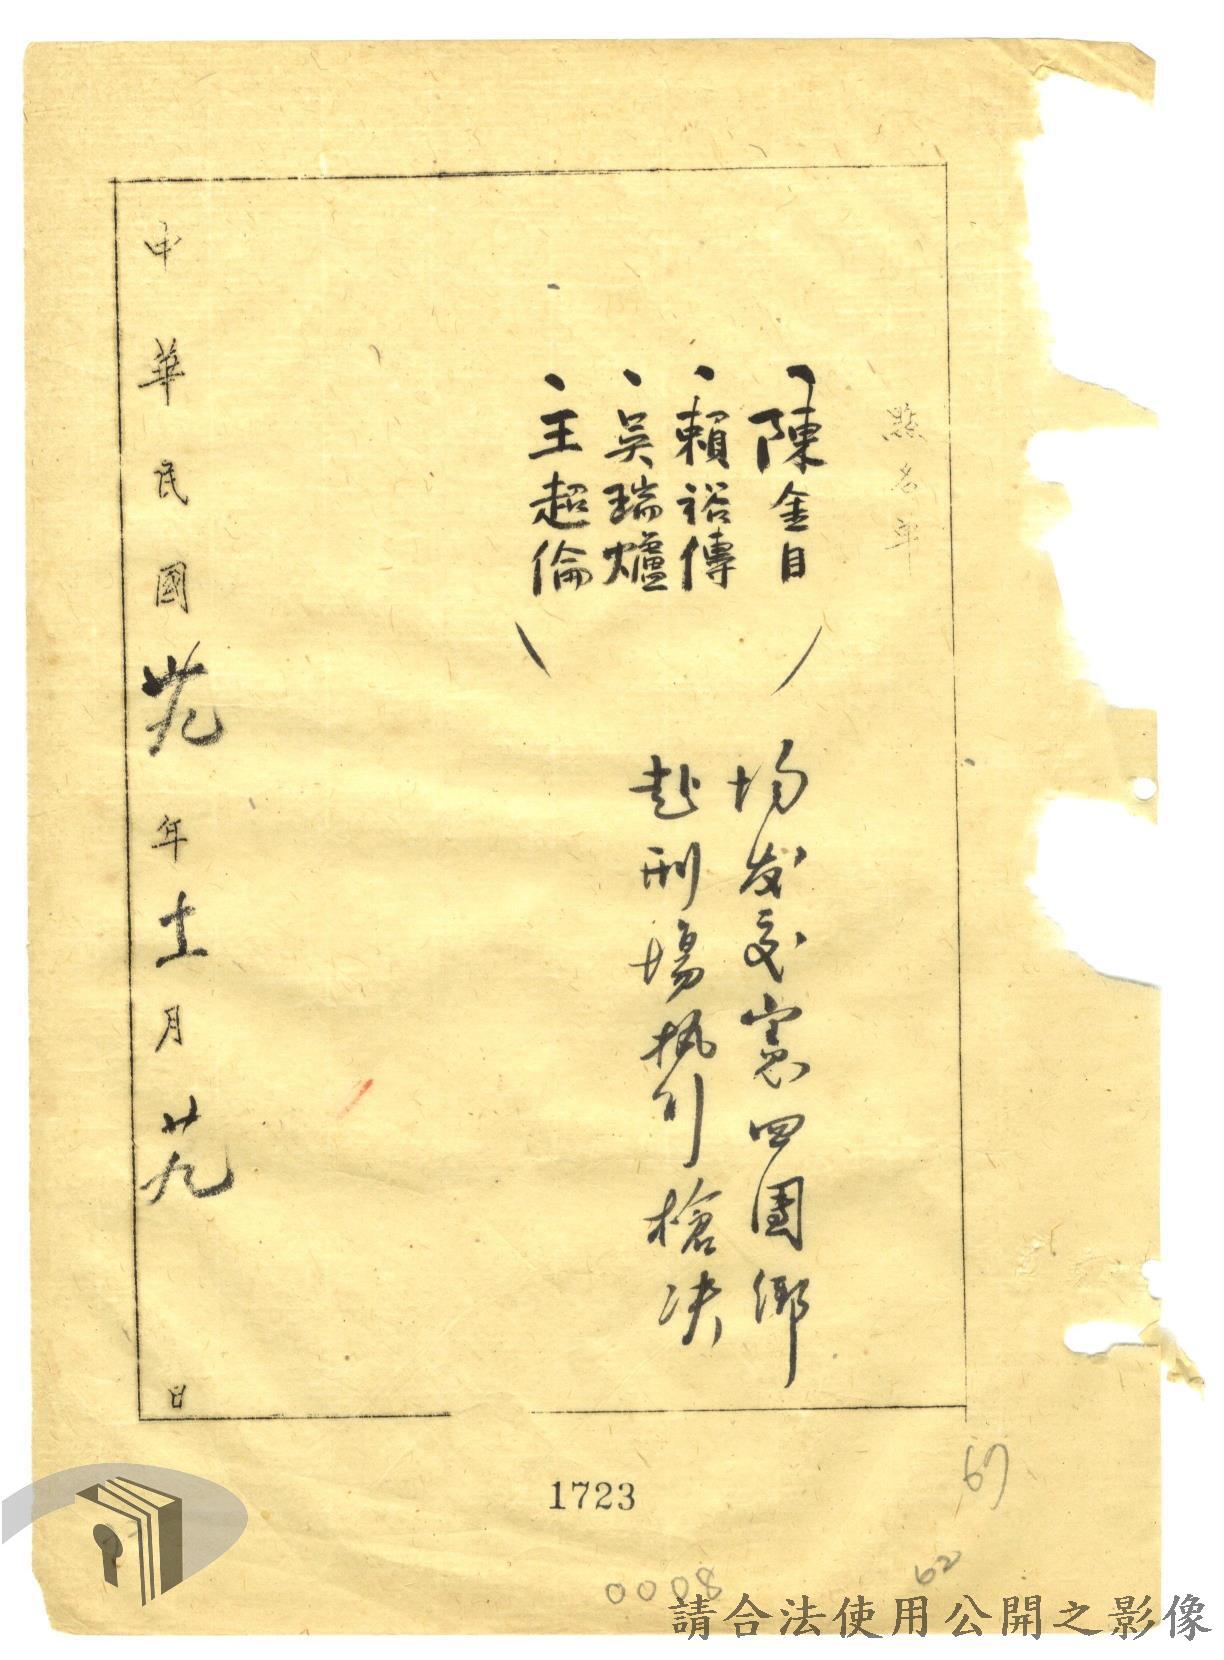 點名單
陳金目
賴裕傳
吳瑞爐
王超倫
均發交憲四團鄉
赴刑場執行槍決
中華民國卅九年十一月廿九日
1723
67
62
0008
請合法使用公開之影像